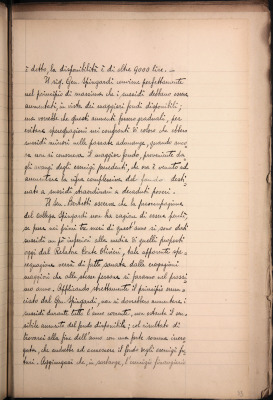 è detto, la disponibilità è di oltre 9000 lire.
Il sig. Gen. Spingardi conviene perfettamente
nel principio di massima che i sussidi debbano essere
aumentati, in vista dei maggiori fondi disponibili;
ma vorrebbe che questi aumenti fossero graduati, per
evitare sperequazioni nei confronti di coloro che ebbero
sussidi minori nelle passate adunanze, quando anco
ra non si conosceva il maggior fondo proveniente da
gli avanzi degli esercizi precedenti, che era è venuto ad
aumentare la cifra complessiva del fondo desti
nato a sussidi straordinari a decaduti poveri.
Il Gen. Bertotti osserva che la preoccupazione
del collega Spingardi non ha ragione di essere poiché,
se pure nei primi tre mesi di quest'anno si sono dati
sussidi un po' inferiori alla media di quelli proposti
oggi dal Relatore Conte Olivieri, tale apparente spe
requazione verrà di fatto sanata dalle erogazioni
maggiori che alle stesse persone si faranno nel prossi
mo anno. Applicando strettamente il principio enun
ciato dal Gen. Spingardi, non si dovrebbero aumentare i
sussidi durante tutto l'anno corrente, non ostante il sen
sibile aumento del fondo disponibile; col risultato di
trovarsi alla fine dell'anno con una forte somma inero
gata, che andrebbe ad accrescere il fondo degli esercizi fu
turi. Aggiungasi che, in sostanza, l'esercizio finanziario